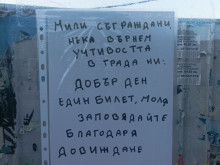 МИЛИ СЪГРАЖДАНИ,
НЕКА ВЪРНЕМ
УЧТИВОСТТА
В ГРАДА НИ:
ДОБЪР ДЕН
ЕДИН БИЛЕТ, МОЛЯ
ЗАПОВЯДАЙТЕ
БЛАГОДАРЯ
ДОВИЖДАНЕ